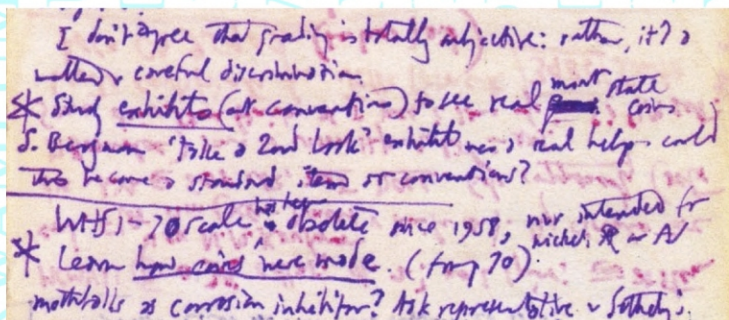 I don't agree that grading is totally subjective: rather, it's a
matter of careful discrimination.
* Study exhibits (at conventions) to see real mint state coins
S. Bergman 'Take a 2nd Look' exhibit was a real help - could
this become a standard item at conventions?
WHS 1-70 scale has been obsolete since 1958, nor intended for nickel, AR or AV
* Learn how coins were made. (for 70).
mothballs as corrosion inhibitor? Ask representative of Sotheby's.